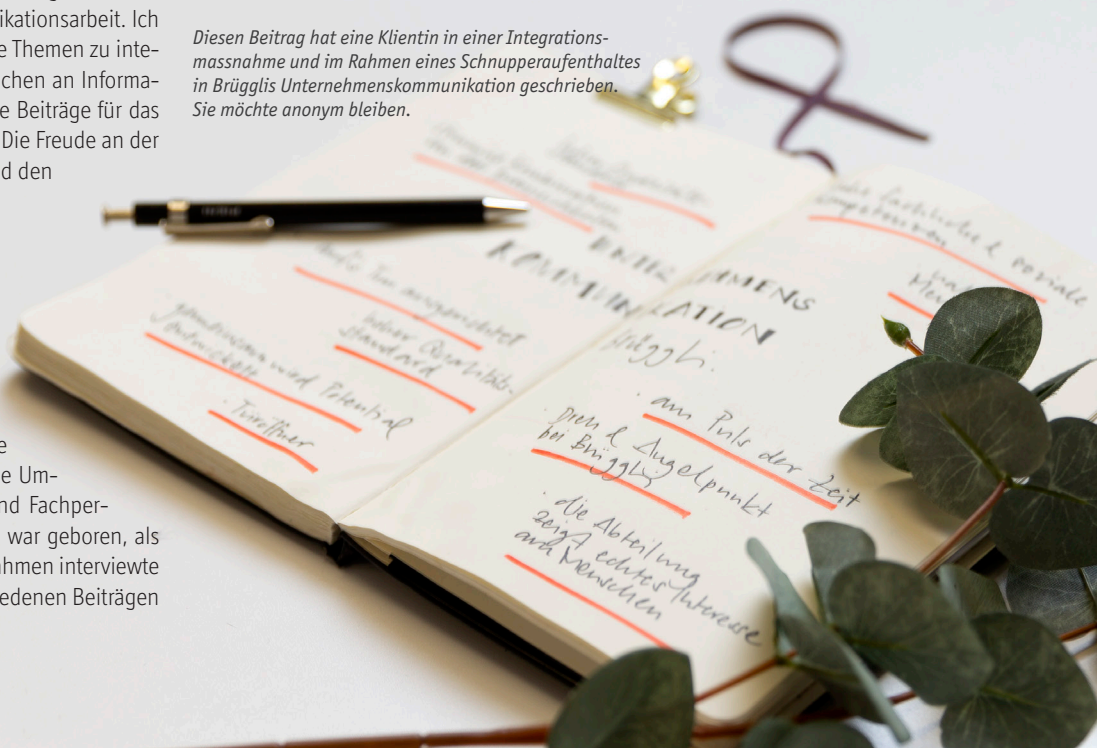 ikationsarbeit. Ich
e Themen zu inte-
chen an Informa-
e Beiträge für das
Die Freude an der
d den
e
e Um-
nd Fachper-
war geboren, als
ahmen interviewte
edenen Beiträgen
Diesen Beitrag hat eine Klientin in einer Integrations-
massnahme und im Rahmen eines Schnupperaufenthaltes
in Brügglis Unternehmenskommunikation geschrieben.
Sie möchte anonym bleiben.
hoher Qualitäts-
standard
gemeinsam wird Potential
entwickelt
· Türöffner
fachliche & soziale
Kompetenzen
UNTER MENS
KOMMUN KATION
Brüggli.
· am Puls der Zeit
· Dreh & Angelpunkt
bei Brüggli
· die Abteilung
zeigt echtes Interesse
am Menschen